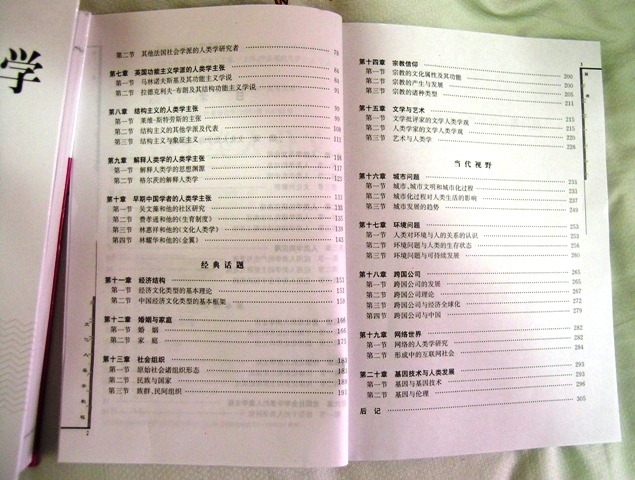 学
第二节 其他法国社会学派的人类学研究者 78
第七章 英国功能主义学派的人类学主张 84
第一节 马林诺夫斯基及其功能主义学说 84
第二节 拉德克利夫-布朗及其结构功能主义学说 91
第八章 结构主义的人类学主张 99
第一节 莱维-斯特劳斯的主张 99
第二节 结构主义的其他学派及代表 108
第三节 结构主义与象征主义 111
第九章 解释人类学的人类学主张 116
第一节 解释人类学的思想渊源 117
第二节 格尔茨的解释人类学 123
第十章 早期中国学者的人类学主张 131
第一节 吴文藻和他的社区研究 131
第二节 费孝通和他的《生育制度》 135
第三节 林惠祥和他的《文化人类学》 139
第四节 林耀华和他的《金翼》 143
经典话题
第十一章 经济结构 151
第一节 经济文化类型的基本理论 151
第二节 中国经济文化类型的基本框架 158
第十二章 婚姻与家庭 166
第一节 婚 姻 166
第二节 家 庭 175
第十三章 社会组织 183
第一节 原始社会诸组织形态 183
第二节 民族与国家 189
第三节 族群、民间组织 193
第十四章 宗教信仰 200
第一节 宗教的文化属性及其功能 200
第二节 宗教的产生与发展 205
第三节 宗教的诸种类型 211
第十五章 文学与艺术 215
第一节 文学批评家的文学人类学观 215
第二节 人类学家的文学人类学观 220
第三节 艺术与人类学 226
当代视野
第十六章 城市问题 233
第一节 城市、城市文明和城市化过程 233
第二节 城市化过程对人类生活的影响 237
第三节 城市发展的趋势 249
第十七章 环境问题 253
第一节 人类对环境与人的关系的认识 253
第二节 环境问题与人类的生存状态 256
第三节 环境问题与可持续发展 260
第十八章 跨国公司 265
第一节 跨国公司的发展 265
第二节 跨国公司理论 267
第三节 跨国公司与经济全球化 272
第四节 跨国公司与中国 279
第十九章 网络世界 282
第一节 网络的人类学研究 282
第二节 形成中的互联网社会 284
第二十章 基因技术与人类发展 293
第一节 基因与基因技术 293
第二节 基因与伦理 296
后 记 305